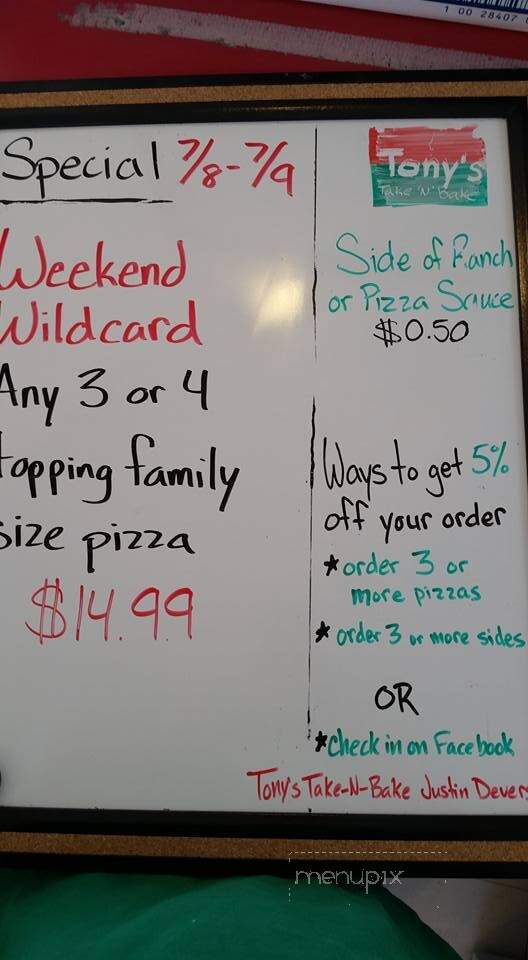 1 00 28407
Special 7/8-7/9
Weekend
Wildcard
Any 3 or 4
topping family
size pizza
$14.99
Tony's
Take 'N' Bake
Side of Ranch
or Pizza Sauce
$0.50
Ways to get 5%
off your order
* order 3 or
more pizzas
* order 3 or more sides
OR
* check in on Facebook
Tony's Take-N-Bake Justin Devers
menupix